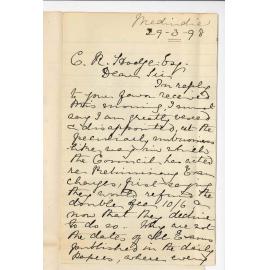 Medindie
29-3-98
C. R. Hodge Esq.
Dear Sir
In reply
to your favor received
this morning, I must
say I am greatly vexed
& disappointed, at the
unbusiness
like way in which
the Council, has acted
re Preliminary Exam
charges, first saying
they would require the
double fee 10/6 &
now that they decline
to do so. Why are not
the dates of all Exams
published in the daily
Papers, where every